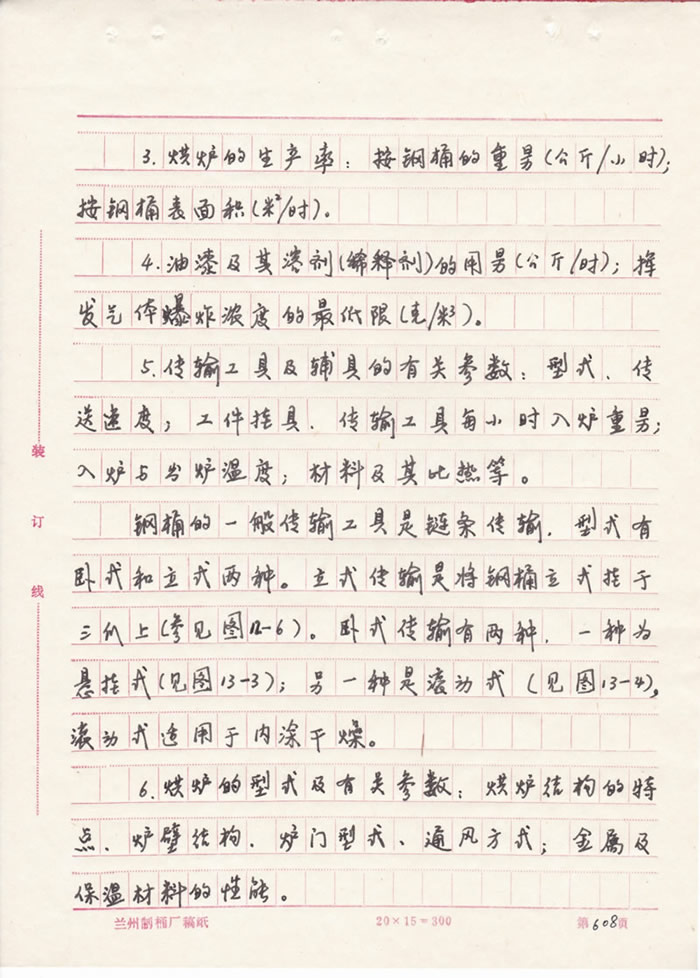 3. 烘炉的生产率：按钢桶的重量(公斤/小时)；
按钢桶表面积(米²/时)。
4. 油漆及其溶剂(稀释剂)的用量(公斤/时)；挥
发气体爆炸浓度的最低限(克/米³)。
5. 传输工具及辅具的有关参数：型式、传
送速度；工件挂具、传输工具每小时入炉重量；
入炉与出炉温度；材料及其比热等。
钢桶的一般传输工具是链条传输，型式有
卧式和立式两种。立式传输是将钢桶立式挂于
三爪上(参见图12-6)。卧式传输有两种，一种为
悬挂式(见图13-3)；另一种是滚动式(见图13-4)。
滚动式适用于内涂干燥。
6. 烘炉的型式及有关参数：烘炉结构的特
点、炉壁结构、炉门型式、通风方式；金属及
保温材料的性能。
装
订
线
兰州制桶厂稿纸 20×15=300 第608页